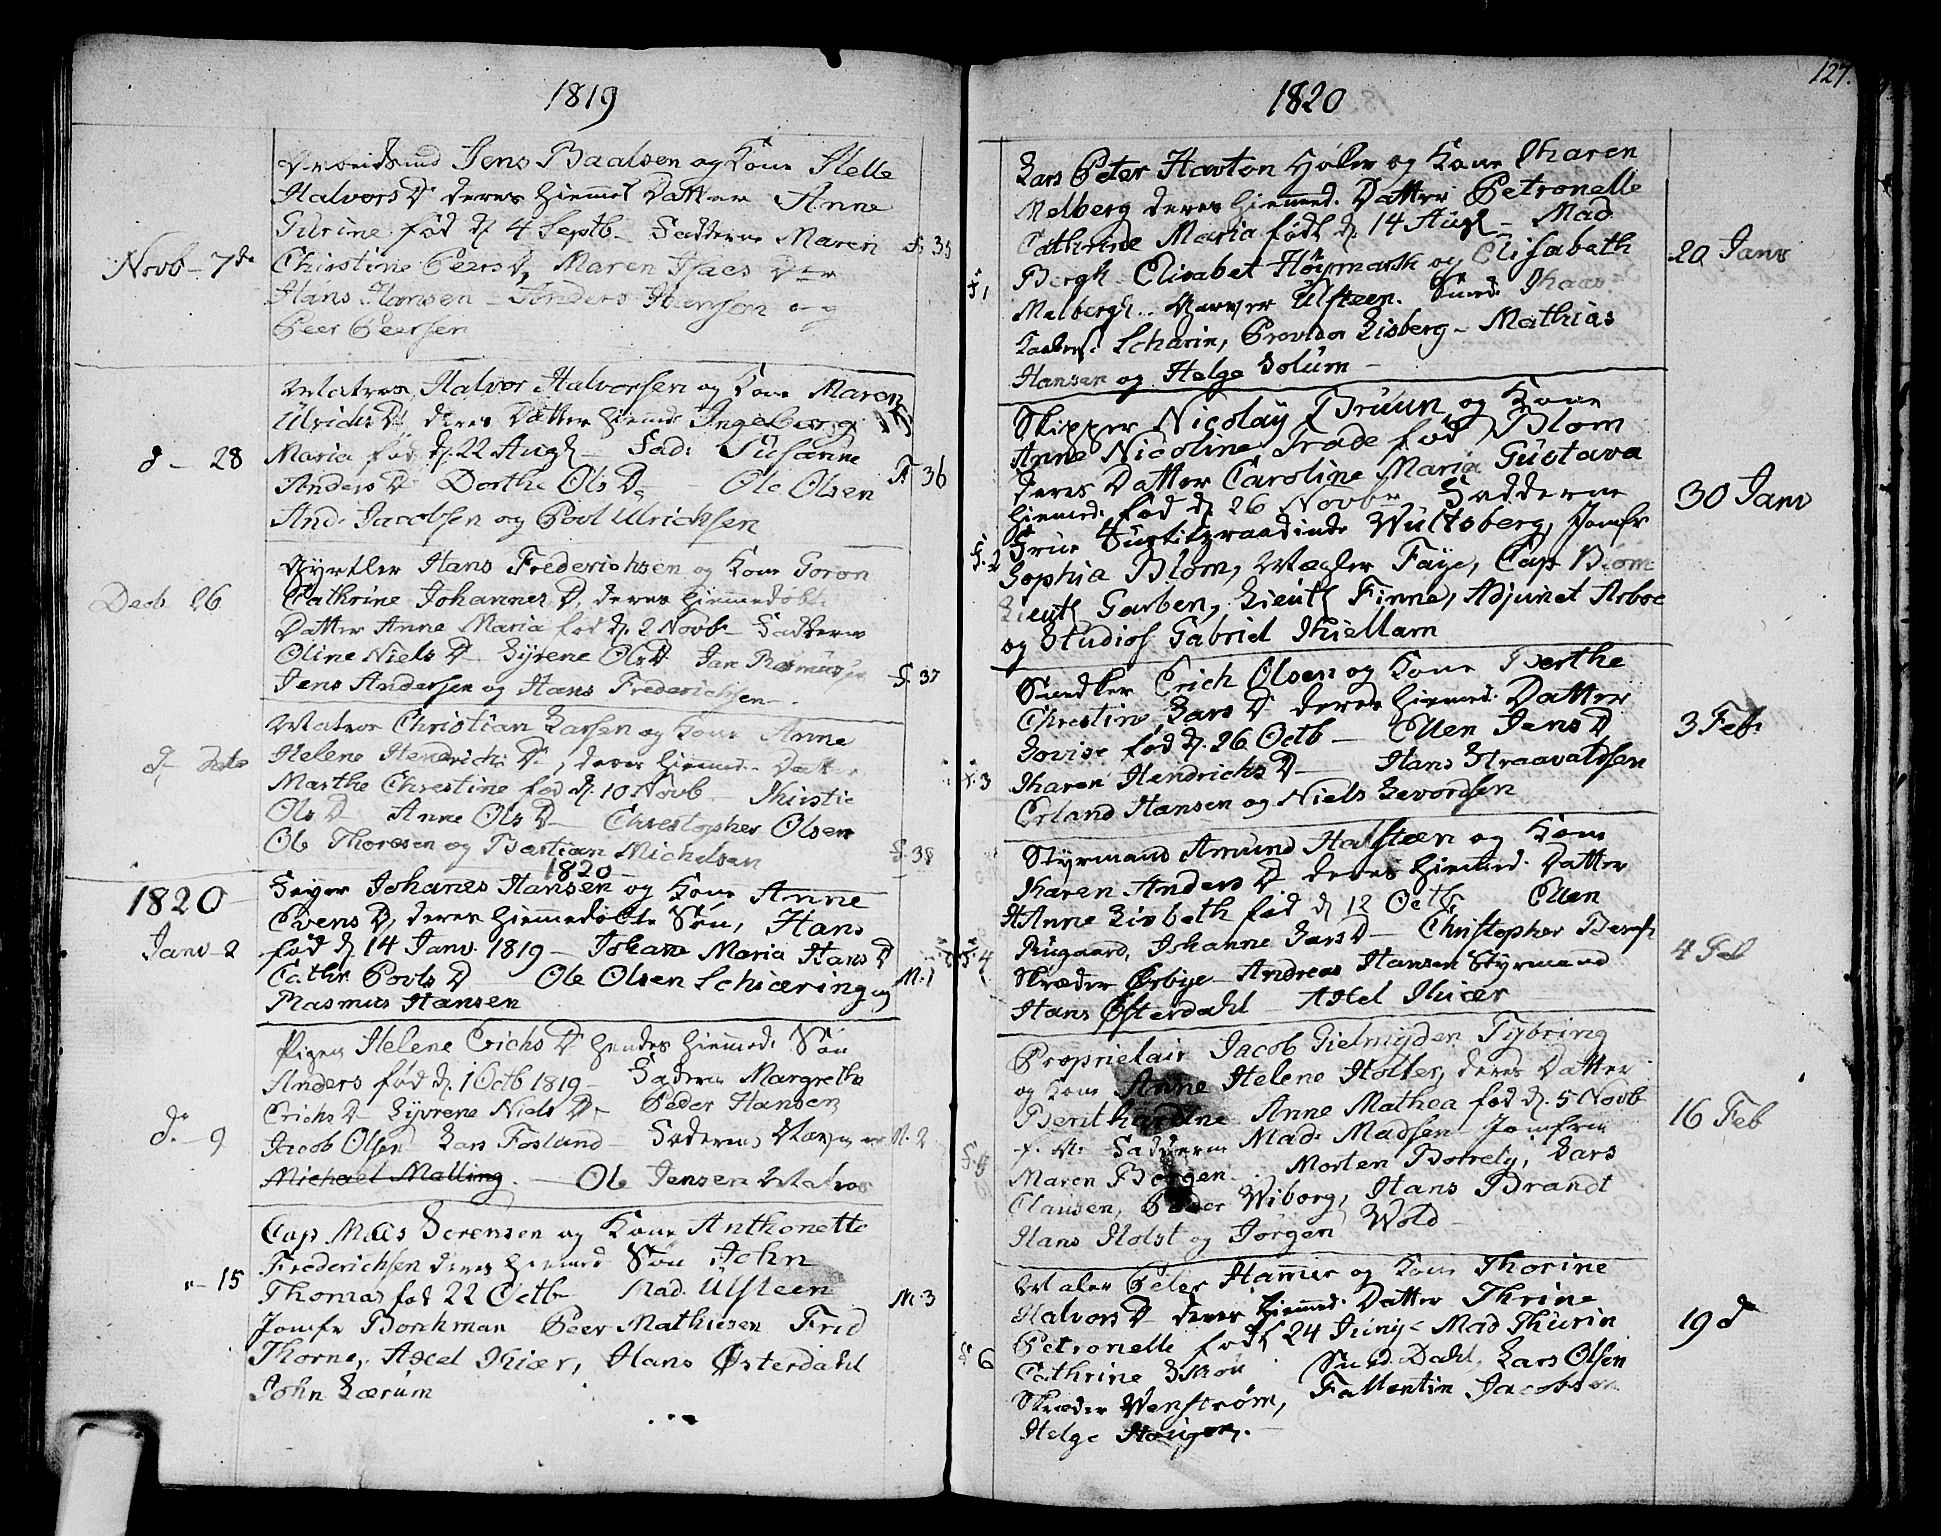 1819
Arbeidsmd Jens Baalsen og Kone Helle
Halvors D deres hiemmed Datter Anne
Gurine fød d. 4 Septb - Fadderne Maren
Novb - 7de Christine Peers D, Maren Isacs Dtr F. 35
Hans Hansen - Anders Hansen og
Peer Peersen
Matros Halvor Halvorsen og Kone Maren
Ulrichs D, deres Datter hiemd Ingeborg
d - 28 Maria fød d. 22 Aug - Fad: Susanne
Anders D Dorthe Ols D - Ole Olsen F 36
And. Jacobsen og Povl Ulrichsen
Gyrtler Hans Frederichsen og Kone Goron
Decb 26 Cathrine Johannes D, deres hiemmedøbte
Datter Anne Maria fød d. 2 Novb - Fadderne
Oline Niels D - Syrene Ols D Jan Rasmussen
Jens Andersen og Hans Frederichsen - F. 37
Matros Christian Larsen og Kone Anne
Helene Hendrichs D, deres hiemmed. Datter
Marthe Chrestine fød d. 10 Novb - Kirstie
Ols D Anne Ols D - Christopher Olsen
Ole Thoresen og Bastian Michelsen F. 38
1820
1820 Feyer Johanes Hansen og Kone Anne
Evens D, deres hiemmedøbte Søn, Hans
Janv 2 fød d. 14 Janv. 1819 - Johane Maria Hans D
Cathr Povls D Ole Olsen Schiæring og M. 1
Rasmus Hansen
Pigen Helene Erichs D hendes hiemmed. Søn
Anders fød d. 1 Octb 1819 - Faderne Margrethe
Erichs D - Syvrene Niels D - Peder Hansen
d. - 9 Jacob Olsen Lars Fosland - M. 2
Michael Malling. - Ole Jensen Matros
Cap Mas Sorensen og Kone Anthonette
Frederichsen deres hiemmed Søn John
" - 15 Thomas fød 22 Octb - Mad. Ulsteen M. 3
Jomfr Borchman Peer Mathiesen Frid
Thorne, Axel Kiær, Hans Østerdahl
John Lærum
127.
1820
Lars Peter Harton Høker og Kone Karen
Melberg deres hiemmed. Datter Petronelle
Cathrine Maria født d. 14 Aug - Mad
F. 1 Bergh - Elisabet Høymarsk og Elisabeth 20 Janv
Melbergh - Ulsteen. Smed
Scharin, Provldor Lisberg - Mathias
Hansen og Helge Solum -
Skipper Nicolay Bruun og Kone
Anne Nicoline Trade fød Blom
deres Datter Caroline Maria Gustava
hiemmed. fød d. 26 Novbr Fadderne 30 Janv
F. 2 Frue Justitzraadinde Wultsberg, Jomfr
Sophia Blom, Mægler Faye, Cap Blom
Lieut Garben, Lieut Finne, Adjunct Arboe
og Studios Gabriel Kiellam
Smedker Erich Olsen og Kone Berthe
Chrestine Lars D deres hiemmed. Datter
Lovise fød d. 26 Octb - Ellen Jens D 3 Feb.
F. 3 Karen Hendrichs D - Hans Straavaldsen
Erland Hansen og Niels Sevordsen
Styrmand Amund Halsteen og Kone
Karen Anders D deres hiemmed. Datter
Anne Lisbeth fød d 12 Octb Ellen
F. 4 Rugaard, Johanne Lars D - Christopher Bergh 4 Feb
Skræder Ørbye - Andreas Hansen Styrmand
Hans Østerdahl Axel Kiær
Proprietair Jacob Gielmyden Tybring
og Kone Anne Helene Holter, deres Datter
Berithardine Anne Mathea fød d. 5 Novb 16 Feb
F. 5 f. A. Fadderne Mad. Madsen Jomfrue
Maren Borgen. Morten Botrely, Lars
Clausen, Peder Wiborg, Hans Brandt
Hans Holst og Jørgen Wold -
Maler Peter Hammer og Kone Thorine
Halvors D deres hiemmed. Datter Thrine
Petronelle født 24 Juny - Mad Thurin 19 d
F. 6 Cathrine Smed. Dahl, Lars Olsen
Skræder Wenstrøm, Fallentin Jacobsen
Helge Haugen.